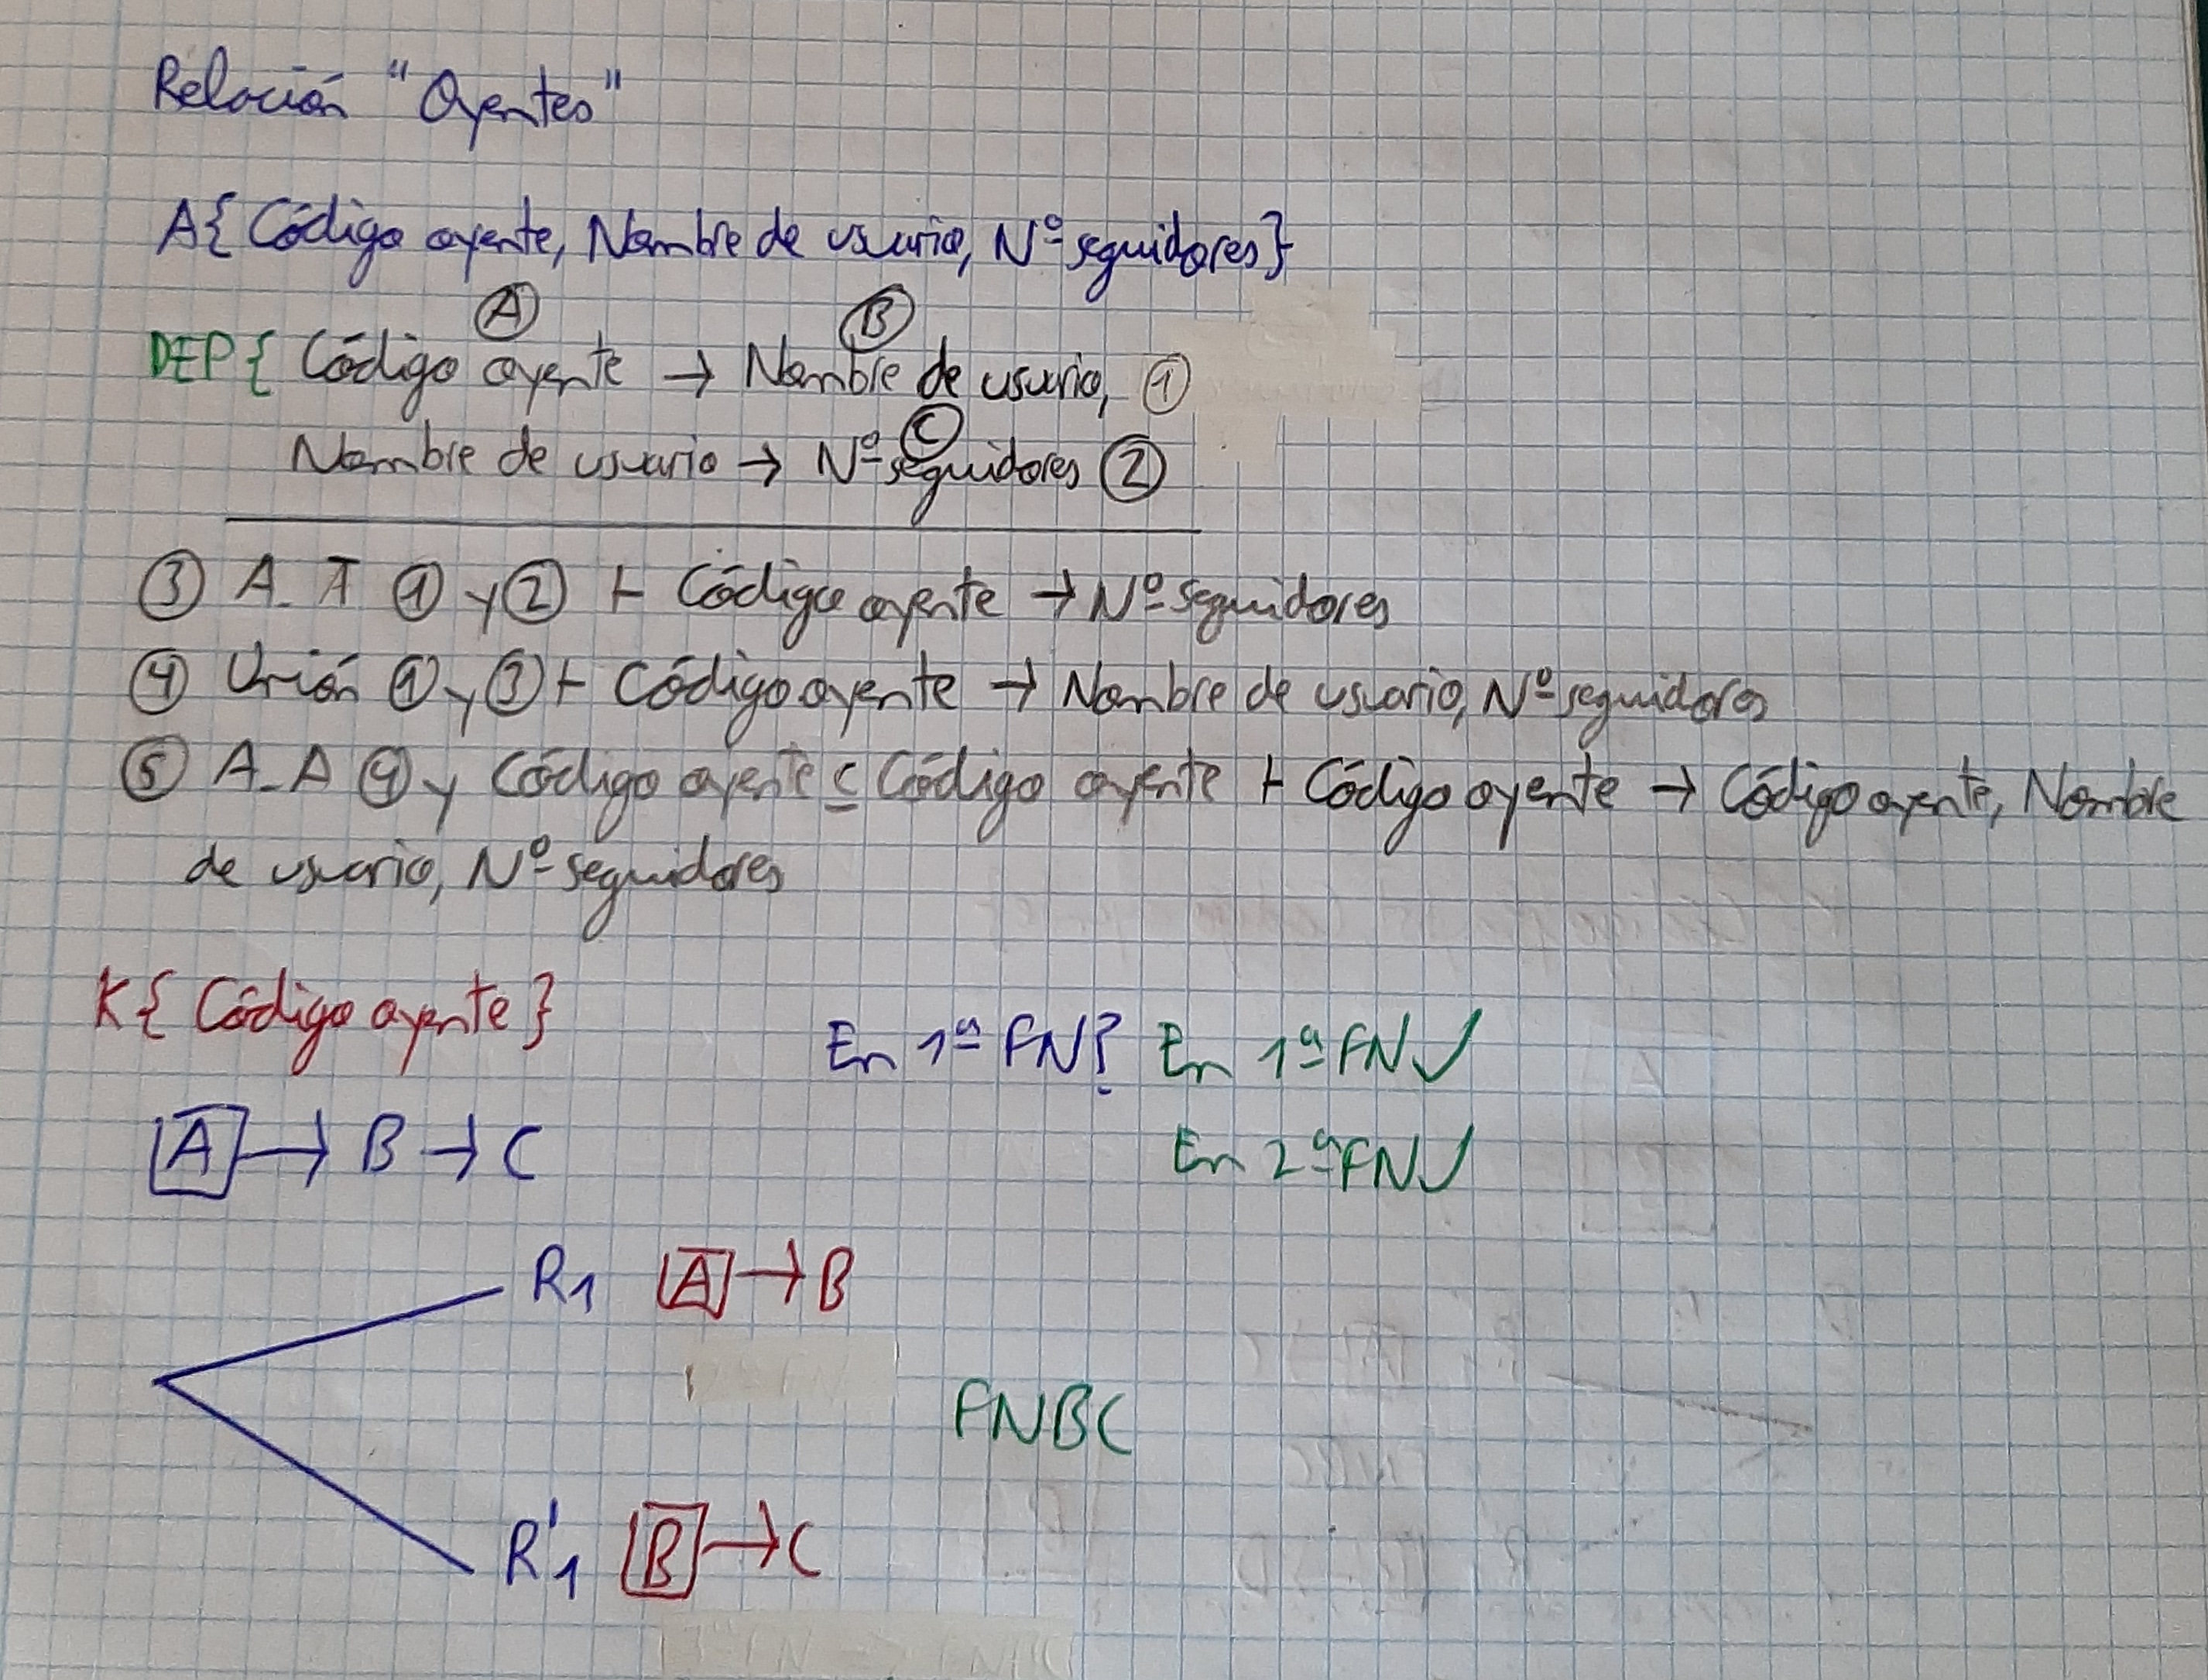 Relación "Oyentes"
A{ Código oyente, Nombre de usuario, Nº seguidores}
A B
DEP{ Código oyente → Nombre de usuario, 1
C
Nombre de usuario → Nº seguidores 2
3 A_T 1 y 2 ⊢ Código oyente → Nº seguidores
4 Unión 1 y 3 ⊢ Código oyente → Nombre de usuario, Nº seguidores
5 A_A 4 y Código oyente ⊆ Código oyente ⊢ Código oyente → Código oyente, Nombre
de usuario, Nº seguidores
K{ Código oyente }
En 1ª FN? En 1ª FN ✓
A → B → C
En 2ª FN ✓
R1 A → B
FNBC
R'1 B → C